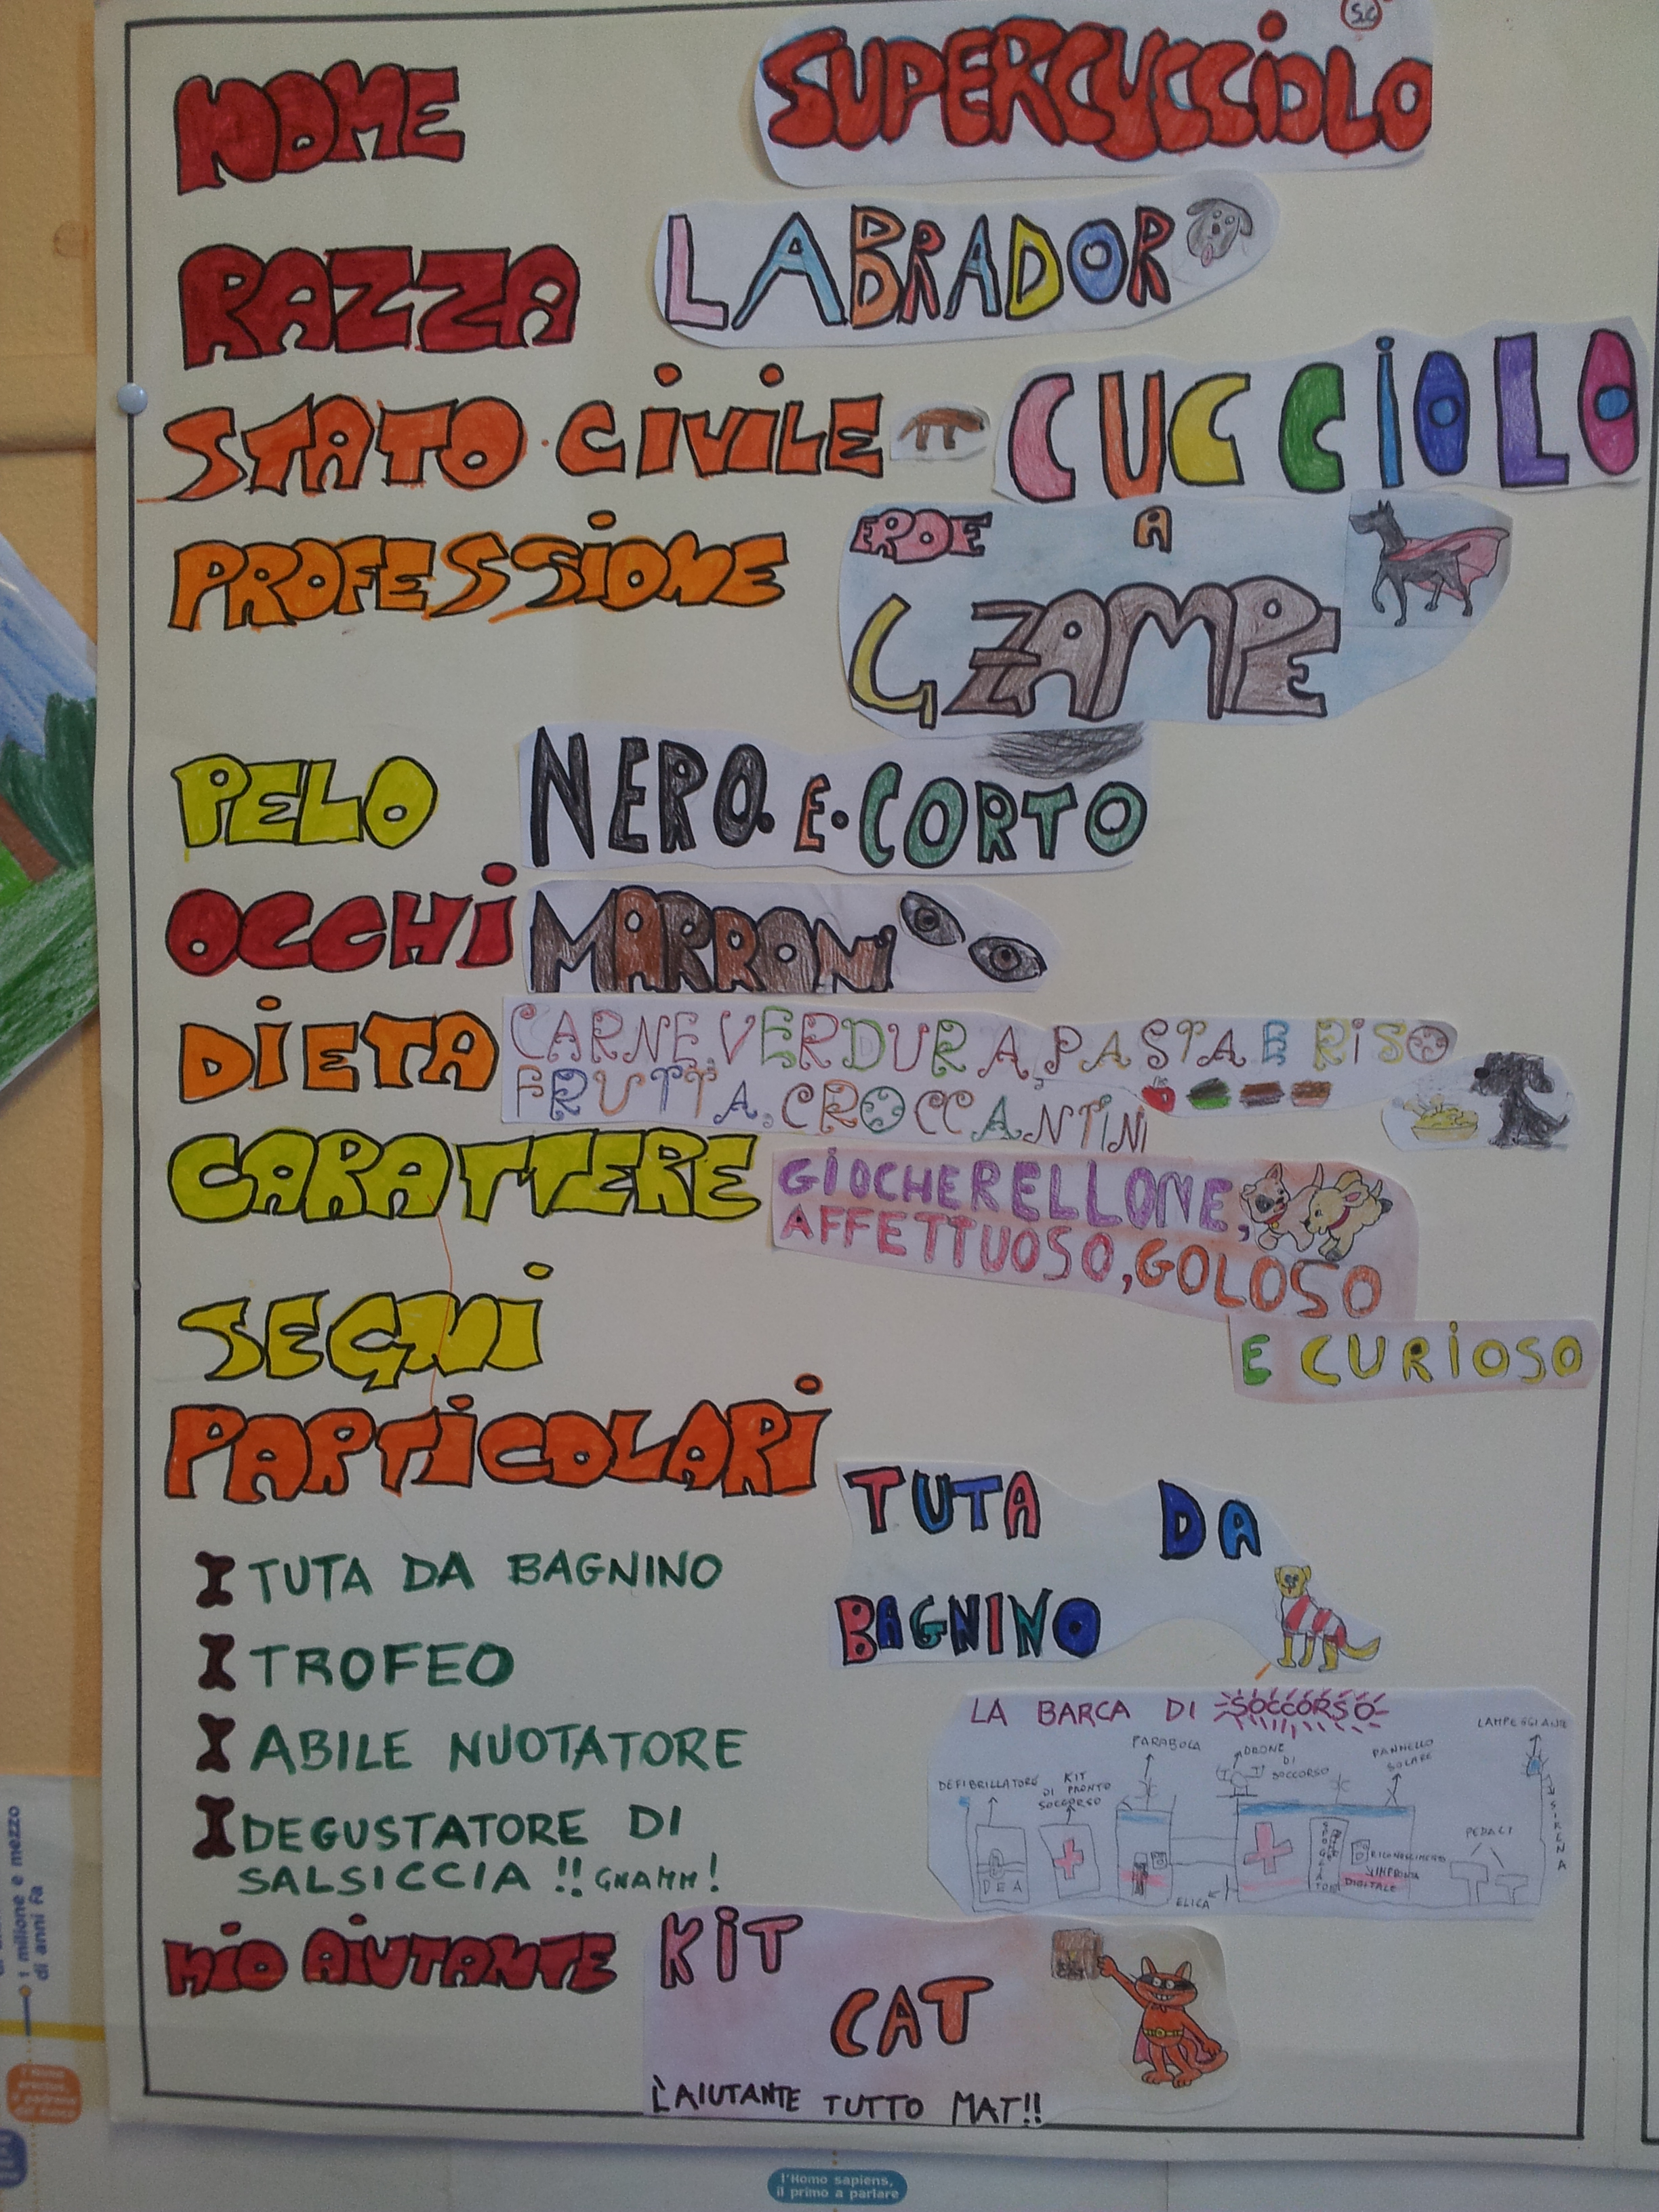 S.C
NOME SUPERCUCCIOLO
RAZZA LABRADOR
STATO CIVILE CUCCIOLO
PROFESSIONE EROE A
4 ZAMPE
PELO NERO E CORTO
OCCHI MARRONI
DIETA CARNE, VERDURA, PASTA E RISO
FRUTTA, CROCCANTINI
CARATTERE GIOCHERELLONE,
AFFETTUOSO, GOLOSO
E CURIOSO
SEGNI
PARTICOLARI
TUTA DA
BAGNINO
TUTA DA BAGNINO
TROFEO
ABILE NUOTATORE
DEGUSTATORE DI
SALSICCIA !! GNAMM!
LA BARCA DI SOCCORSO
LAMPEGGIANTE
PARABOLA
DRONE
DI
SOCCORSO
PANNELLO
SOLARE
DEFIBRILLATORE
KIT
DI PRONTO
SOCCORSO
SIRENA
PEDALI
RICONOSCIMENTO
IMPRONTA
DIGITALE
DEA
ELICA
MIO AIUTANTE KIT
CAT
L'AIUTANTE TUTTO MAT!!
1 milione e mezzo
di anni fa
l'Homo sapiens,
il primo a parlare